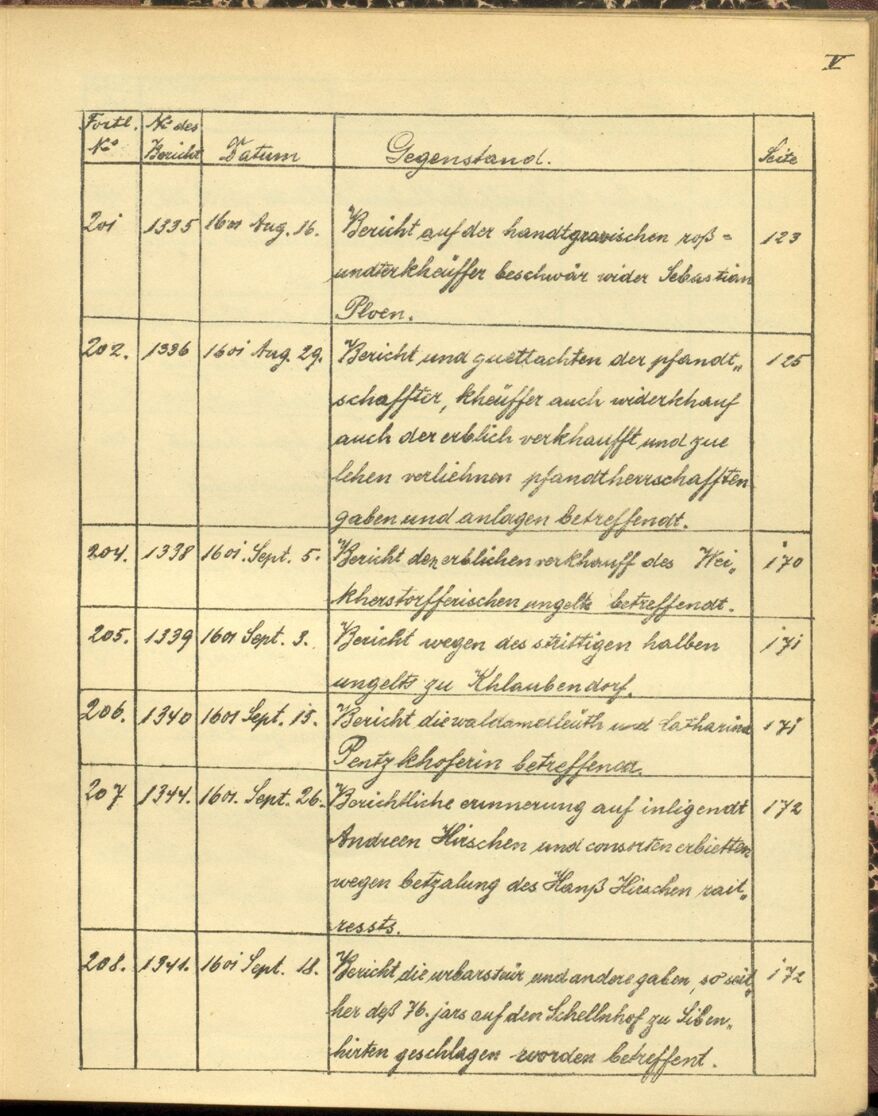 V
Fortl. No des
No Bericht Datum Gegenstand. Seite
201 1335 1601 Aug. 16. Bericht auf der handtgravischen roß= 123
undterkheüffer beschwär wider Sebastian
Ploen.
202. 1336 1601 Aug. 29. Bericht und guettachten der pfandt„ 125
schaffter, kheüffer auch widerkhauf
auch der erblich verkhaufft und zue
lehen verliehnen pfandtherrschafften
gaben und anlagen betreffendt.
204. 1338 1601. Sept. 5. Bericht den erblichen verkhauff des Wei„ 170
kherstorfferischen ungelts betreffendt.
205. 1339 1601 Sept. 3. Bericht wegen des strittigen halben 171
ungelts zu Khlaubendorf.
206. 1340 1601 Sept. 15. Bericht die waldamdleüth und Catharina 171
Pentzkhoferin betreffend.
207 1344. 1601. Sept. 26. Berichtliche erinnerung auf inligendt 172
Andreen Hirschen und consorten erbietten
wegen betzalung des Hanß Hirschen rait„
ressts.
208. 1341. 1601 Sept. 18. Bericht die urbarsteür und andere gaben, so seit„ 172
her deß 76. jars auf den Schellnhof zu Siben„
hirten geschlagen worden betreffent.